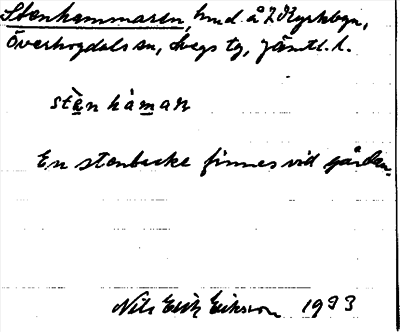 Stenhammaren, hmd. å Kyrkbyn,
Överhogdals sn, Svegs tg, Jämtl. l.
stèn hàman
En stenbacke finnes vid gården.
Nils Erik Eriksson 1933